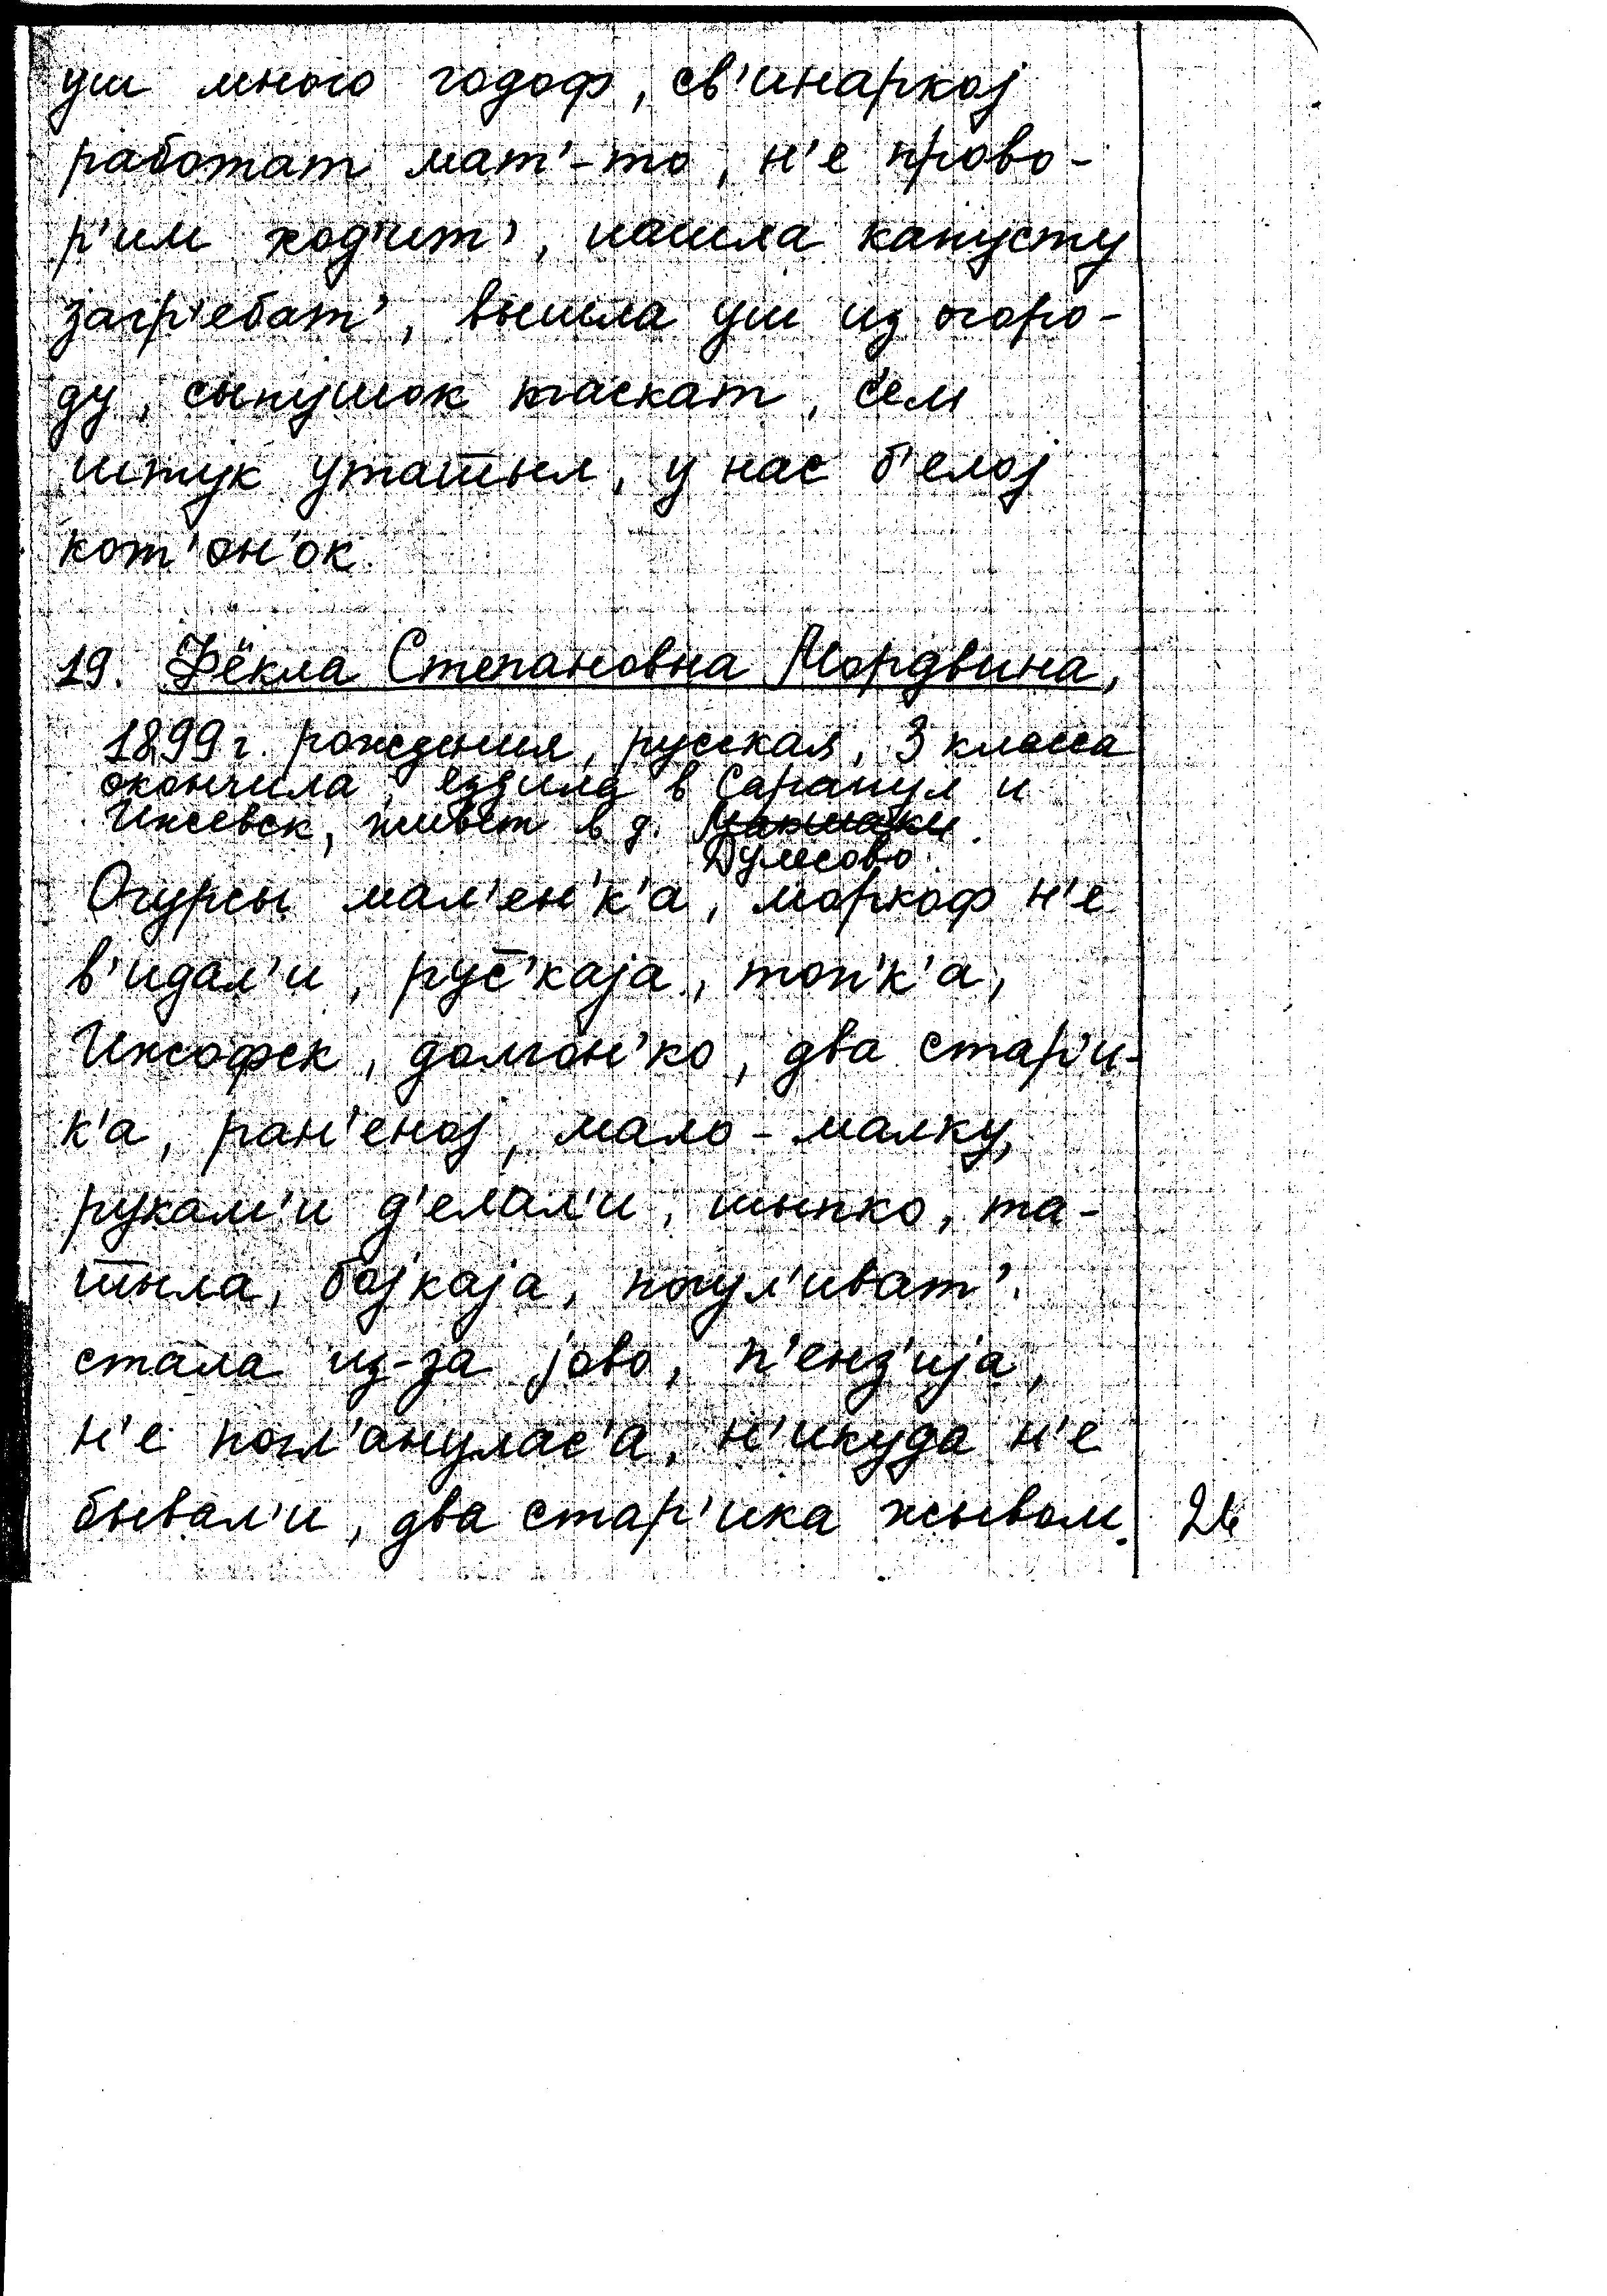 уш много годоф, св'инаркој
работат мат'-то, н'е прово-
р'им ход'ит', пашла капусту
загр'ебат', вышла уш из огоро-
ду, сыпушок таскат, с'ем
штук уташ̅ыл, у нас б'елој
кот'он'ок.
19. Фёкла Степановна Мордвина,
1899 г. рождения, русская, 3 класса
окончила, ездила в Сарапул и
Ижевск, живёт в д.
Дулесово.
Огурсы мал'ен'к'а, моркоф н'е
в'идал'и, рус̅'каја, топ'к'а,
Ижофск, долгон'ко, два стар'и-
к'а, ран'еној, мало-малку,
рукам'и д'елал'и, шыпко, та-
ш̅ыла, бојкаја, погул'иват'
стала из-за јово, п'енз'ија,
н'е погл'анулас'а, н'икуда н'е
бывал'и, два стар'ика жывом.
26